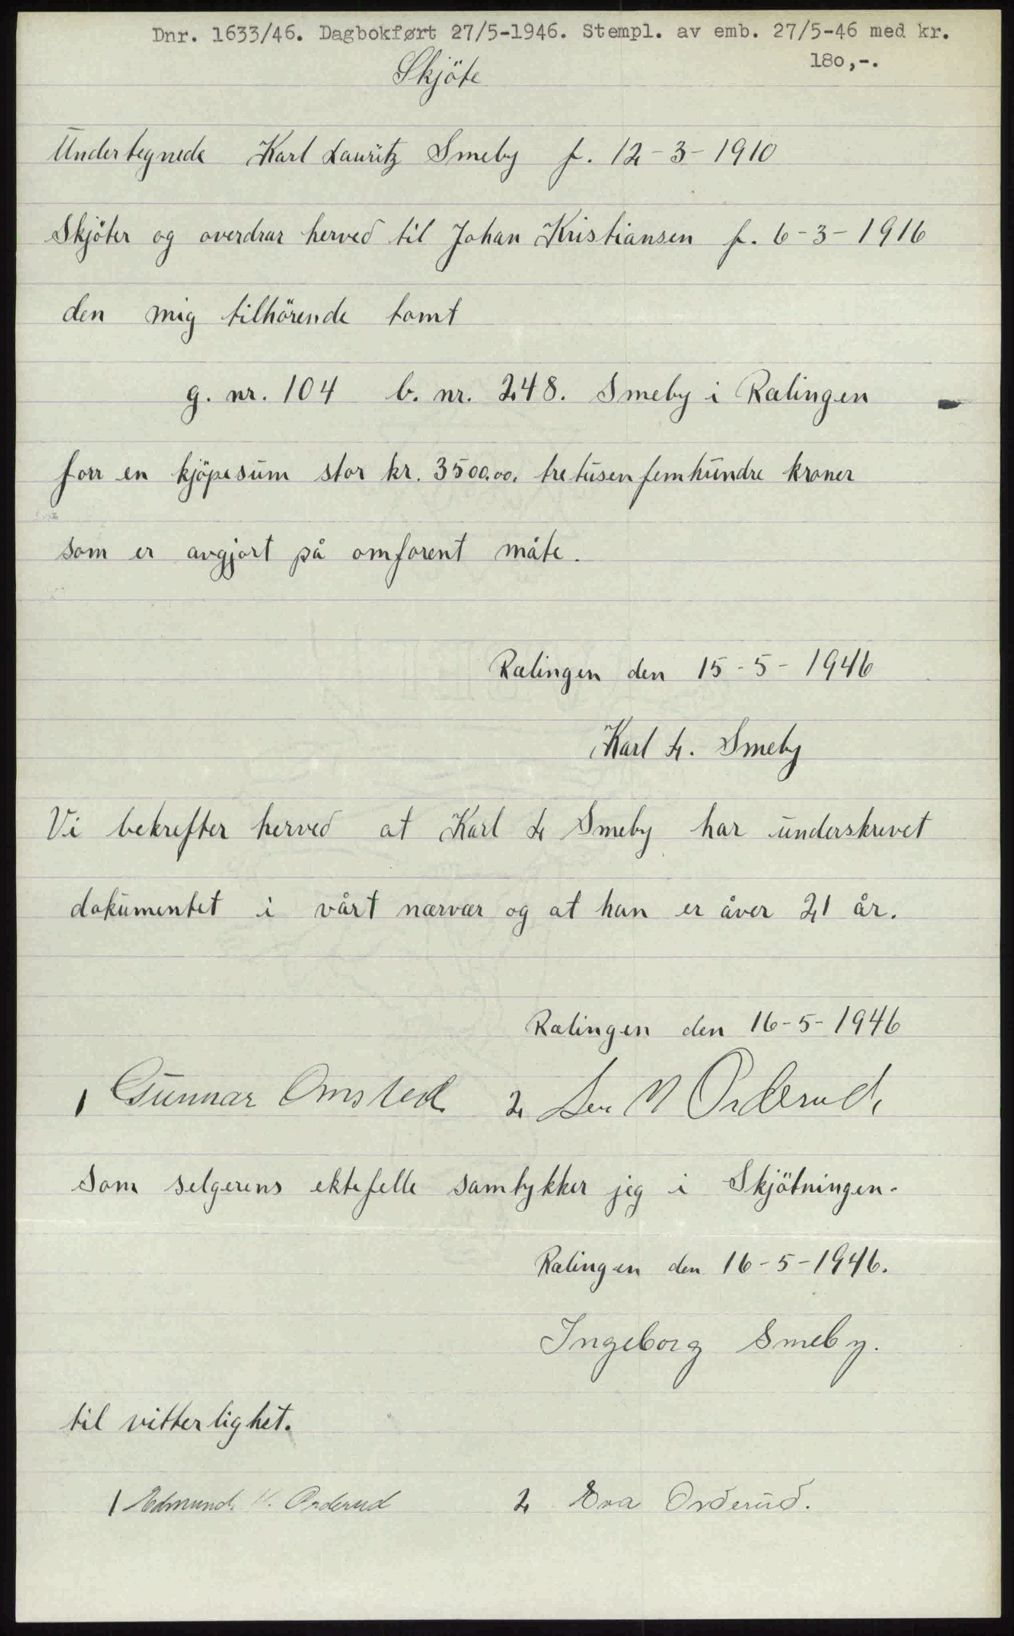 Dnr. 1633/46. Dagbokført 27/5-1946. Stempl. av emb. 27/5-46 med kr.
180,-.
Skjöte
Undertegnede Karl Lauritz Smeby f. 12-3-1910
Skjöter og overdrar herved til Johan Kristiansen f. 6-3-1916
den mig tilhörende tomt
g. nr. 104 b. nr. 248. Smeby i Rælingen
forr en kjöpesum stor kr. 3500.00. tretusenfemhundre kroner
som er avgjort på omforent måte.
Rælingen den 15-5-1946
Karl L. Smeby
Vi bekrefter herved at Karl L Smeby har underskrevet
dokumentet i vårt nærvær og at han er åver 21 år.
Rælingen den 16-5-1946
1 Gunnar Omsted 2 N Orderud,
Som selgerens ektefelle samtykker jeg i Skjötningen.
Rælingen den 16-5-1946.
Ingeborg Smeby.
til vitterlighet.
1 Edmund Orderud 2 Eva Orderud.